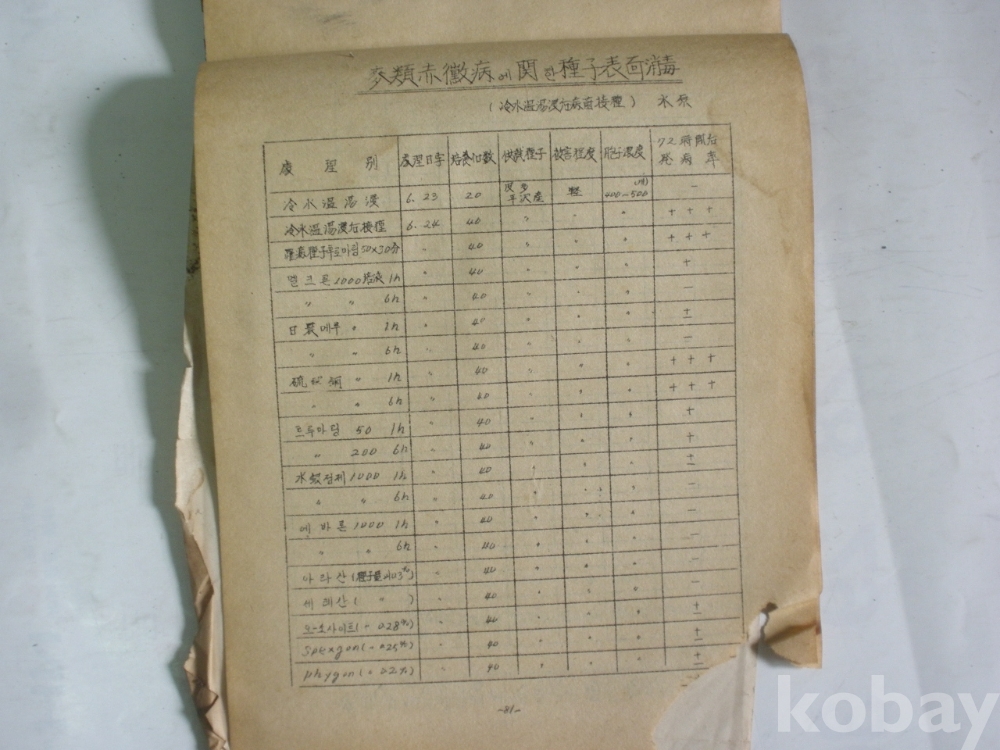 麥類赤黴病에関한種子表面消毒
(冷水温湯浸后病菌接種) 水原
處理別 處理日字 培養個数 供試種子 被害程度 胞子濃度 72時間后発病率
冷水温湯浸 6.23 20 平沢産 軽 400-500 -
冷水温湯浸后接種 6.24 40 〃 〃 +++
50×30分 〃 40 〃 〃 〃 +++
멜크론 1000倍液 1h 〃 40 〃 〃 〃 +
〃 〃 6h 〃 40 〃 〃 〃 -
日農에루 〃 1h 〃 40 〃 〃 〃 ±
〃 〃 6h 〃 40 〃 〃 〃 -
硫酸銅 〃 1h 〃 40 〃 〃 〃 +++
〃 〃 6h 〃 40 〃 〃 〃 +++
프루마링 50 1h 〃 40 〃 〃 〃 +
〃 200 6h 〃 40 〃 〃 〃 +
水銀錠剤 1000 1h 〃 40 〃 〃 〃 ±
〃 〃 6h 〃 40 〃 〃 〃 -
에바론 1000 1h 〃 40 〃 〃 〃 -
〃 〃 6h 〃 40 〃 〃 〃 -
아라산(種子量の0.3%) 〃 40 〃 〃 〃 -
세레산( 〃 ) 〃 40 〃 〃 〃 -
(〃 0.28%) 〃 40 〃 〃 〃 ±
Spexgon(〃 0.25%) 〃 40 〃 〃 〃 ±
phygon(〃 0.2%) 〃 40 〃 〃 〃 ±
-81-
kobay